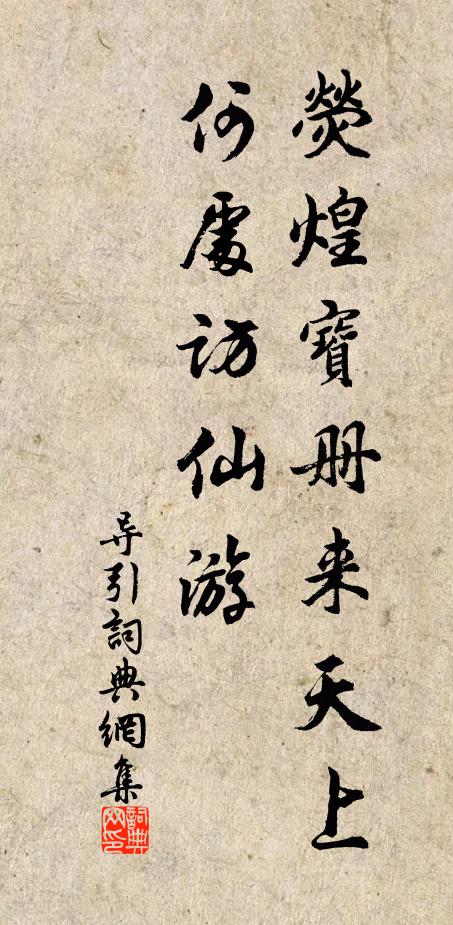 熒煌寶册来天上
何處访仙游
导引詞典網集
詞典
网印